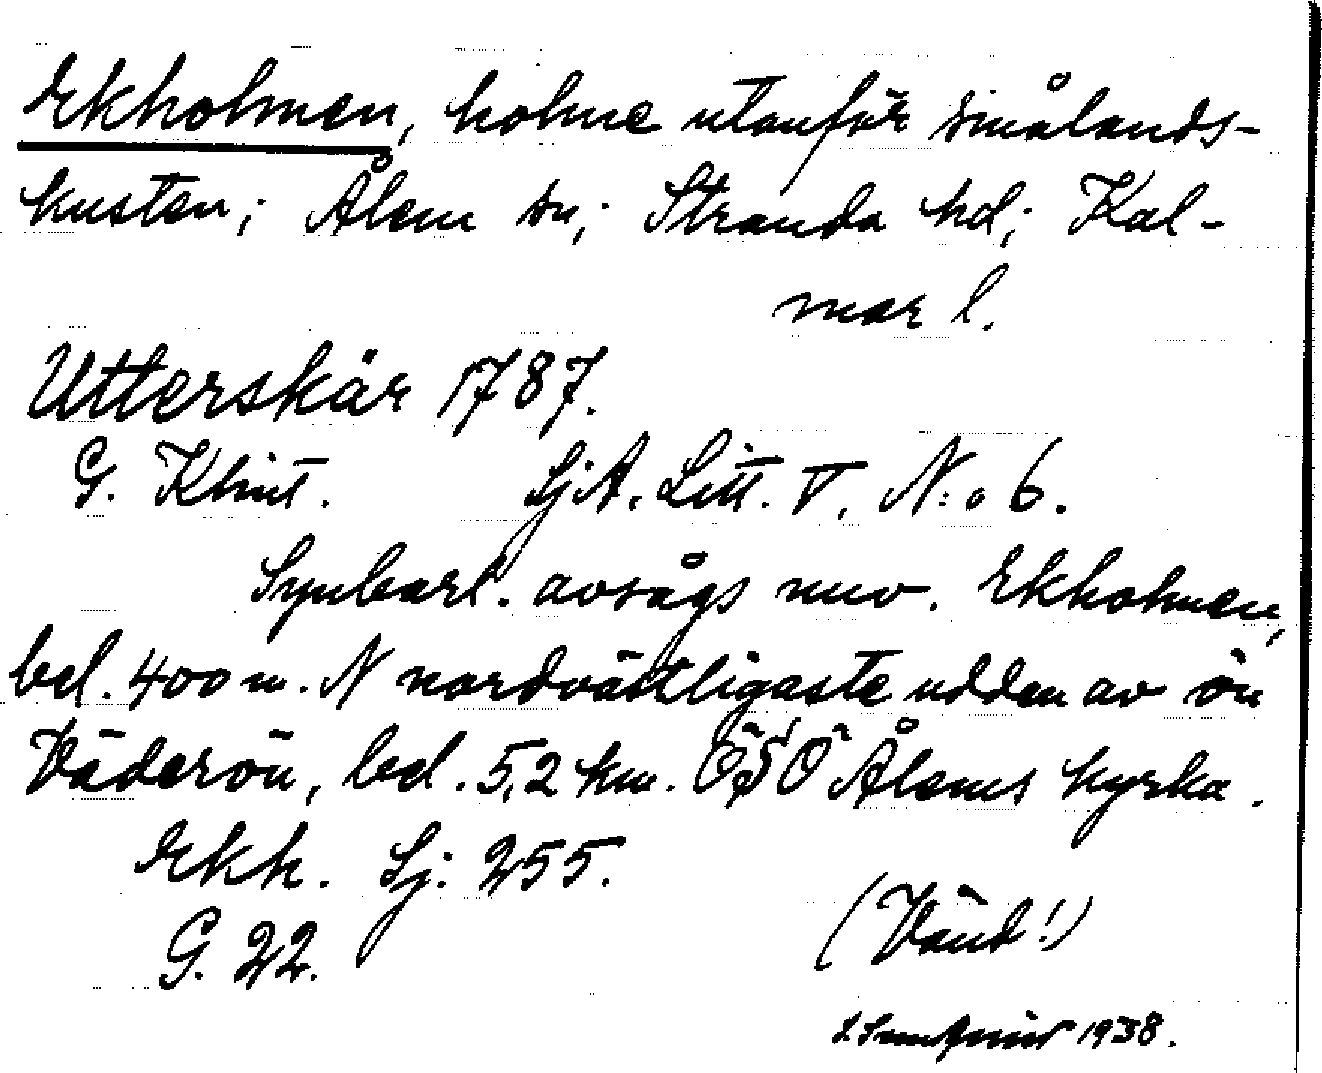 Ekholmen, holme utanför Smålands-
kusten; Ålem sn; Stranda hd; Kal-
mar l.
Utterskär 1787.
G. Klint. SjA. Litt. V. N:o 6.
Synbarl. avsågs nuv. Ekholmen,
bel. 400 m. N nordvästligaste udden av ön
Väderön, bel. 5,2 km. ÖSÖ Ålems kyrka.
Ekh. Sj. 255.
G. 22.
(Vänd!)
1938.